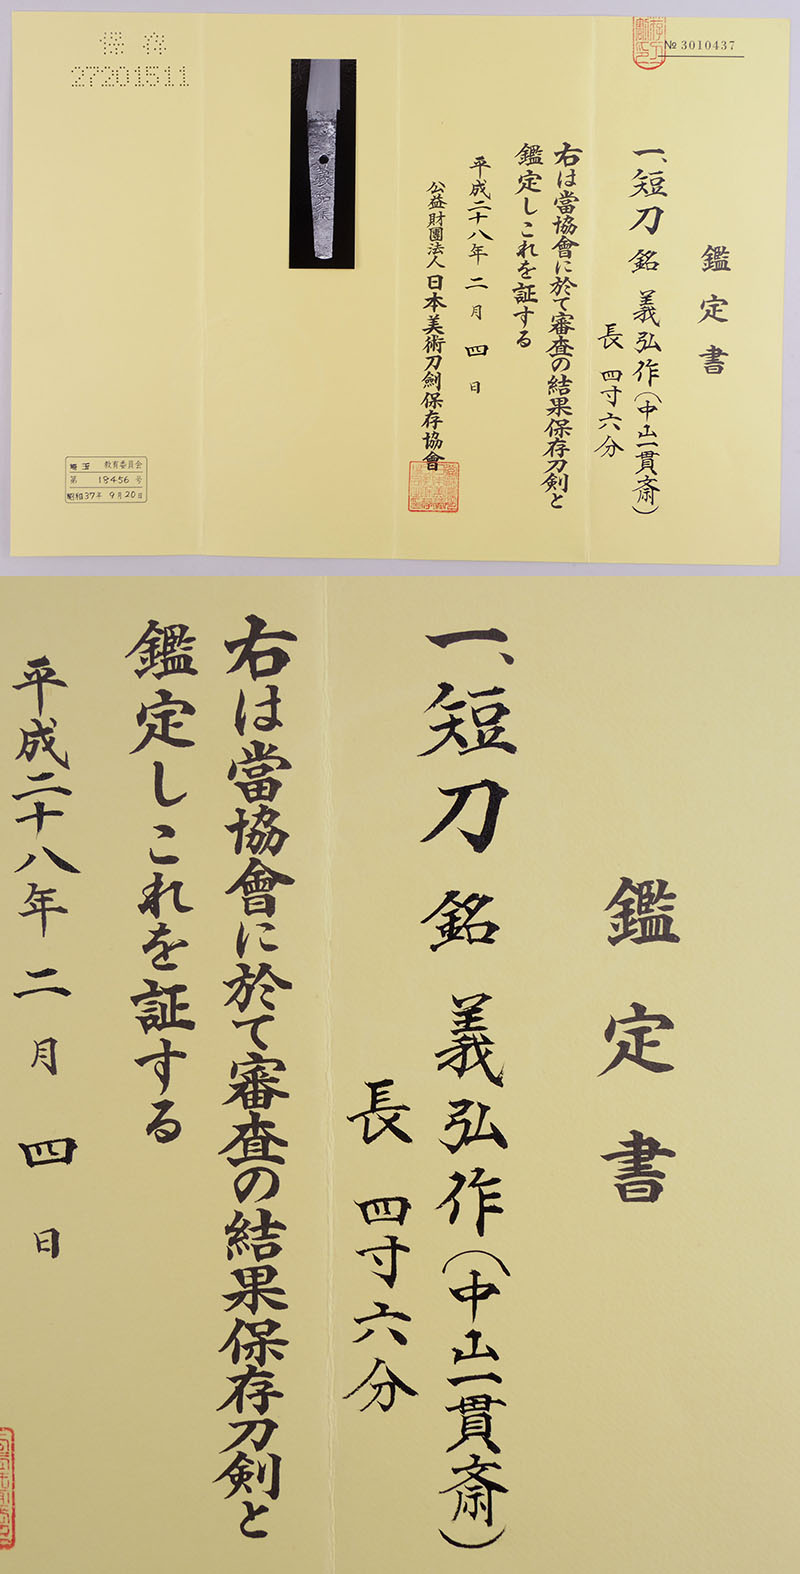 № 3010437
鑑定書
一、短刀 銘 義弘作(中山一貫斎)
長 四寸六分
右は當協會に於て審査の結果保存刀剣と
鑑定しこれを証する
平成二十八年 二月 四日
公益財團法人 日本美術刀劍保存協會
保存
27201511
埼玉 教育委員会
第 18456 号
昭和37年 9月20日
鑑定書
一、短刀 銘 義弘作(中山一貫斎)
長 四寸六分
右は當協會に於て審査の結果保存刀剣と
鑑定しこれを証する
平成二十八年 二月 四日